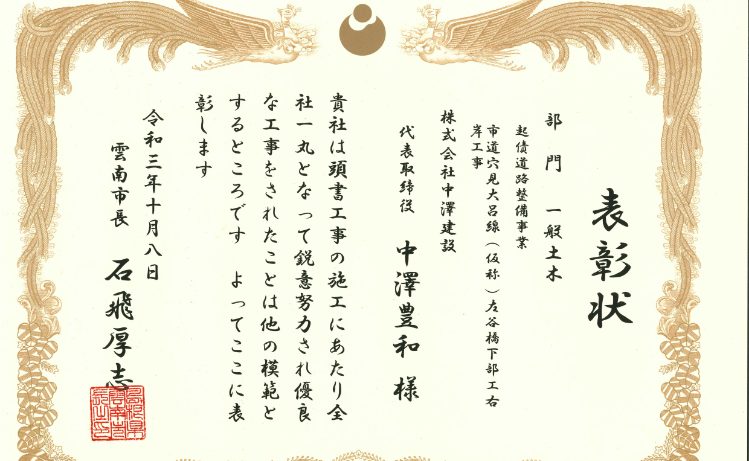 表彰状
部門 一般土木
起債道路整備事業
市道穴見大呂線(仮称)左谷橋下部工右
岸工事
株式会社中澤建設
代表取締役 中澤豊和 様
貴社は頭書工事の施工にあたり全
社一丸となって鋭意努力され優良
な工事をされたことは他の模範と
するところです よってここに表
彰します
令和三年十月八日
雲南市長 石飛厚志